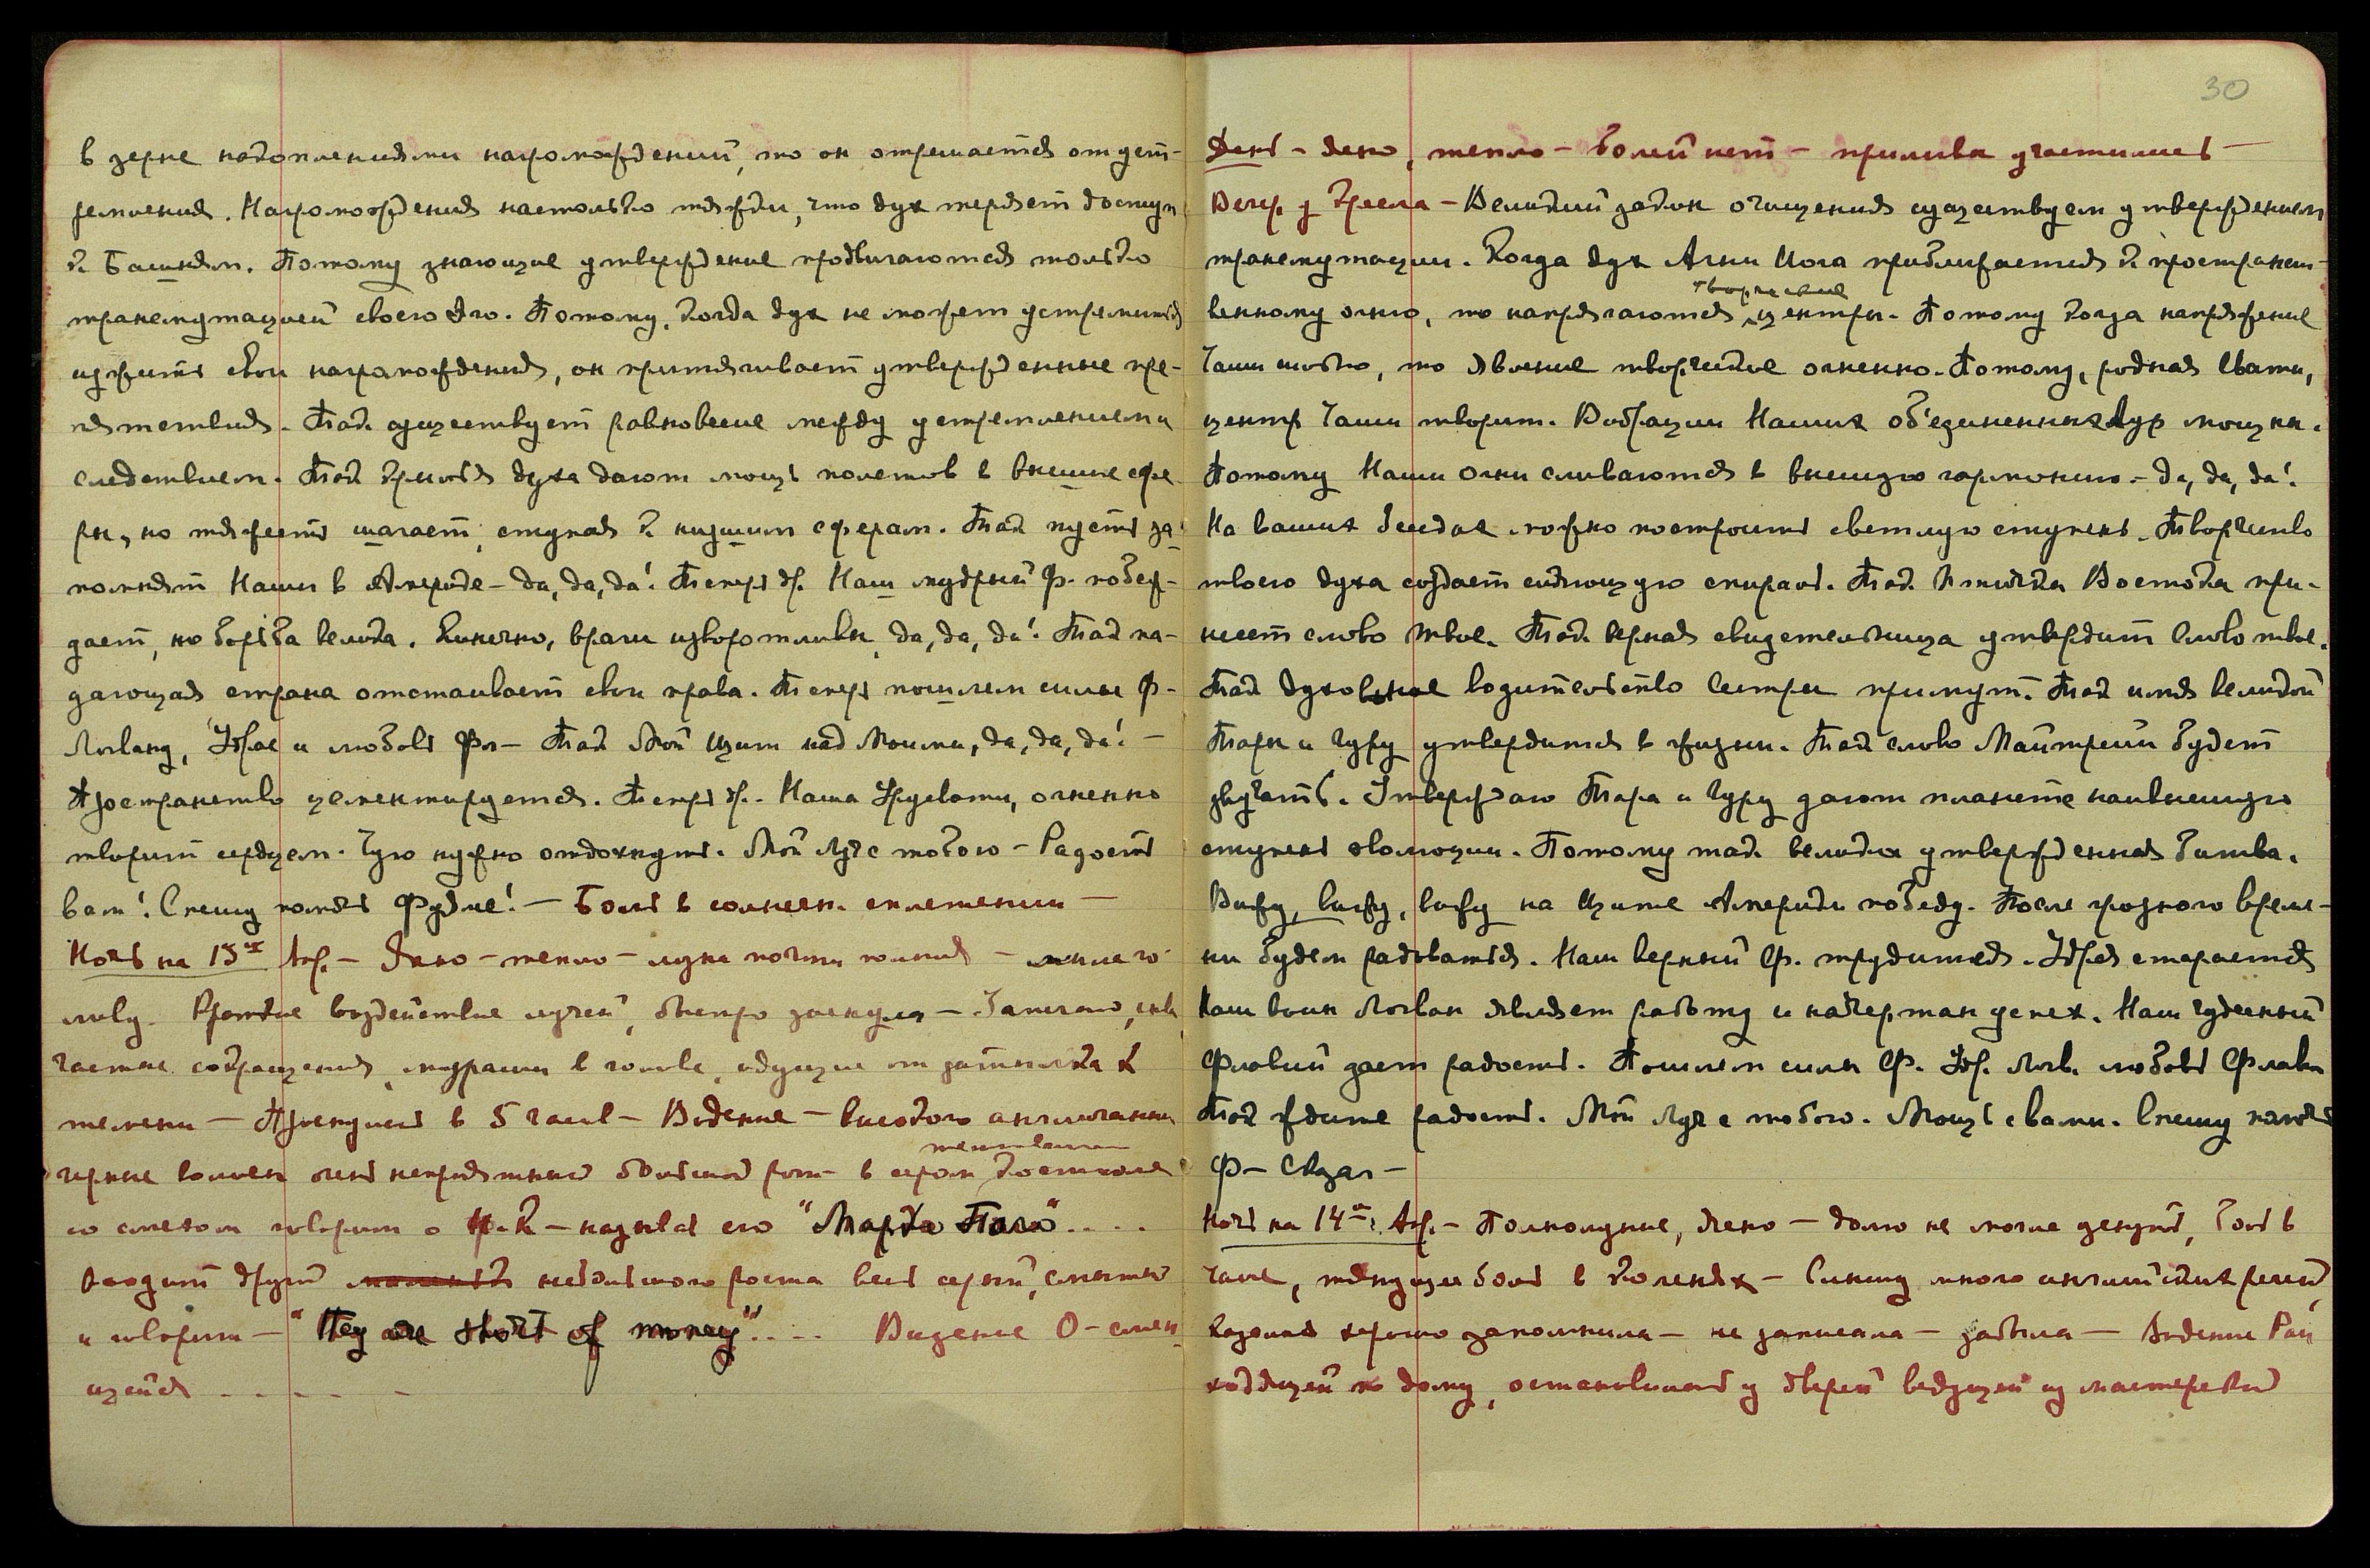 в зерне накоплениями нагромождений, то он отрешается от уст-
ремления. Нагромождения настолько тяжки, что дух теряет доступ
к Башням. Потому знающие утверждение продвигаются только
трансмутацией своего Эго. Потому, когда дух не может устремиться
изжить свои нагромождения, он притягивает утвержденные пре-
пятствия. Так существует равновесие между устремлением и
следствием. Так крылья духа дают мощь полетов в высшие сфе-
ры, но тяжесть шагает, ступая к низшим сферам. Так пусть за-
помнят Наши в Америке – да, да, да! Теперь др. Наш мудрый Ф. побеж-
дает, но борьба велика. Конечно, враги изворотливы, да, да, да! Так па-
дающая страна отстаивает свои права. Теперь пошлем силы Ф.
Логвану, Удрае и любовь Фл– Так Мой Щит над Моими, да, да, да! –
Пространство цементируется. Теперь др. Наша Урусвати, огненно
творит сердцем. Чую нужно отдохнуть. Мой Луч с тобою – Радость
вам! Спешу помочь Фуяме! – Боль в солнечн. сплетении –
Ночь на 13ое Апр. – Ясно – тепло – луна почти полная –
Краткое воздействие лучей, быстро заснула –
частые сокращения, в голове, идущие от затылка к
темени – Проснулась в 5 часов – Видение – высокого англичанина
темноватом
черные волосы очень неприятный большой рот – в сером костюме
со смехом говорит о Н.К – называя его "Марко Поло" ....
Входит другой небольшого роста весь серый, смятый
и говорит – "They are short of money" .... Видение О- смею-
щейся – – – – –
30
День – Ясно, тепло – болей нет – приливы участились –
Вечер. у Кресла – Великий закон очищения существует утверждением
трансмутации. Когда дух Агни Йога приближается к пространст-
творческие
венному огню, то напрягаются центры. Потому когда напряжение
Чаши, то явление творческое огненно. Потому, родная Свати,
центр Чаши творит. Вибрации Наших объединенных Аур мощны.
Потому Наши огни сливаются в высшую гармонию. – Да, да, да!
На ваших можно построить светлую ступень. Творчество
твоего духа создает сияющую спираль. Так Птичка Востока при-
несет слово твое. Так верная свидетельница утвердит Слово твое.
Так духовное водительство Сестры примут. Так имя великой
Тары и Гуру утвердится в жизни. Так слово Майтрейи будет
звучать. Утверждаю Тара и Гуру дают планете наивысшую
ступень эволюции. Потому так велика утвержденная битва.
Вижу, вижу, вижу на Щите Америки победу. После грозного време-
ни будем радоваться. Наш верный Ф. трудится. Удрая старается
Наш воин Логван являет работу и начертан успех. Наш чудесный
Флавий дает радость. Пошлем силы Ф. Удр. Логв. любовь Флави
Так ждите радость. Мой Луч с тобою. Мощь с вами. Спешу помочь
Ф– Сказал –
Ночь на 14ое Апр. – Полнолуние, ясно – долго не могла уснуть, боль в
Чаше, тянущая боль в коленях – Слышу много английских речей,
казалось хорошо запомнила – не записала – забыла – Видение Раи
ходящей по дому, остановилась у дверей ведущей из мастерской